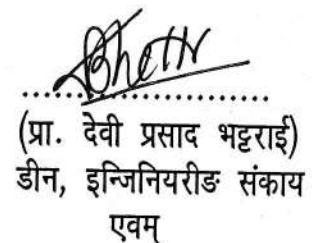 (प्रा. देवी प्रसाद भट्टराई)
डीन, इन्जिनियरीङ संकाय
एवम्